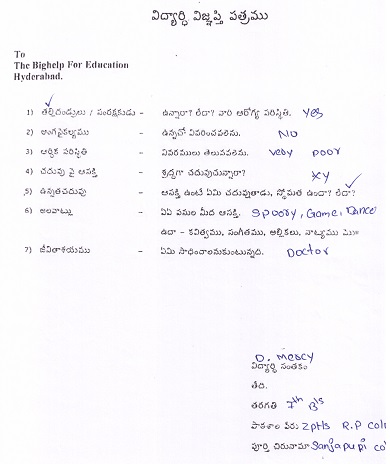 విద్యార్ధి విజ్ఞప్తి పత్రము
To
The Bighelp For Education
Hyderabad.
1) తల్లిదండ్రులు / సంరక్షకుడు - ఉన్నారా? లేదా? వారి ఆరోగ్య పరిస్థితి. Yes
2) అంగవైకల్యము - ఉన్నచో వివరించవలెను. No
3) ఆర్థిక పరిస్థితి - వివరములు తెలుపవలెను. very poor
4) చదువు పై ఆసక్తి - శ్రద్ధగా చదువుచున్నారా?
5) ఉన్నతచదువు - ఆసక్తి ఉంటే ఏమి చదువుతాడు, స్థోమత ఉందా? లేదా?
6) అలవాట్లు - ఏఏ పనుల మీద ఆసక్తి. Game, Dance
ఉదా - కవిత్వము, సంగీతము, అల్లికలు, నాట్యము
7) జీవితాశయము - ఏమి సాధించాలనుకుంటున్నది. Doctor
D. Mercy
విద్యార్థి సంతకం
తేది.
తరగతి 7th
పాఠశాల పేరు zphs R.P
పూర్తి చిరునామా